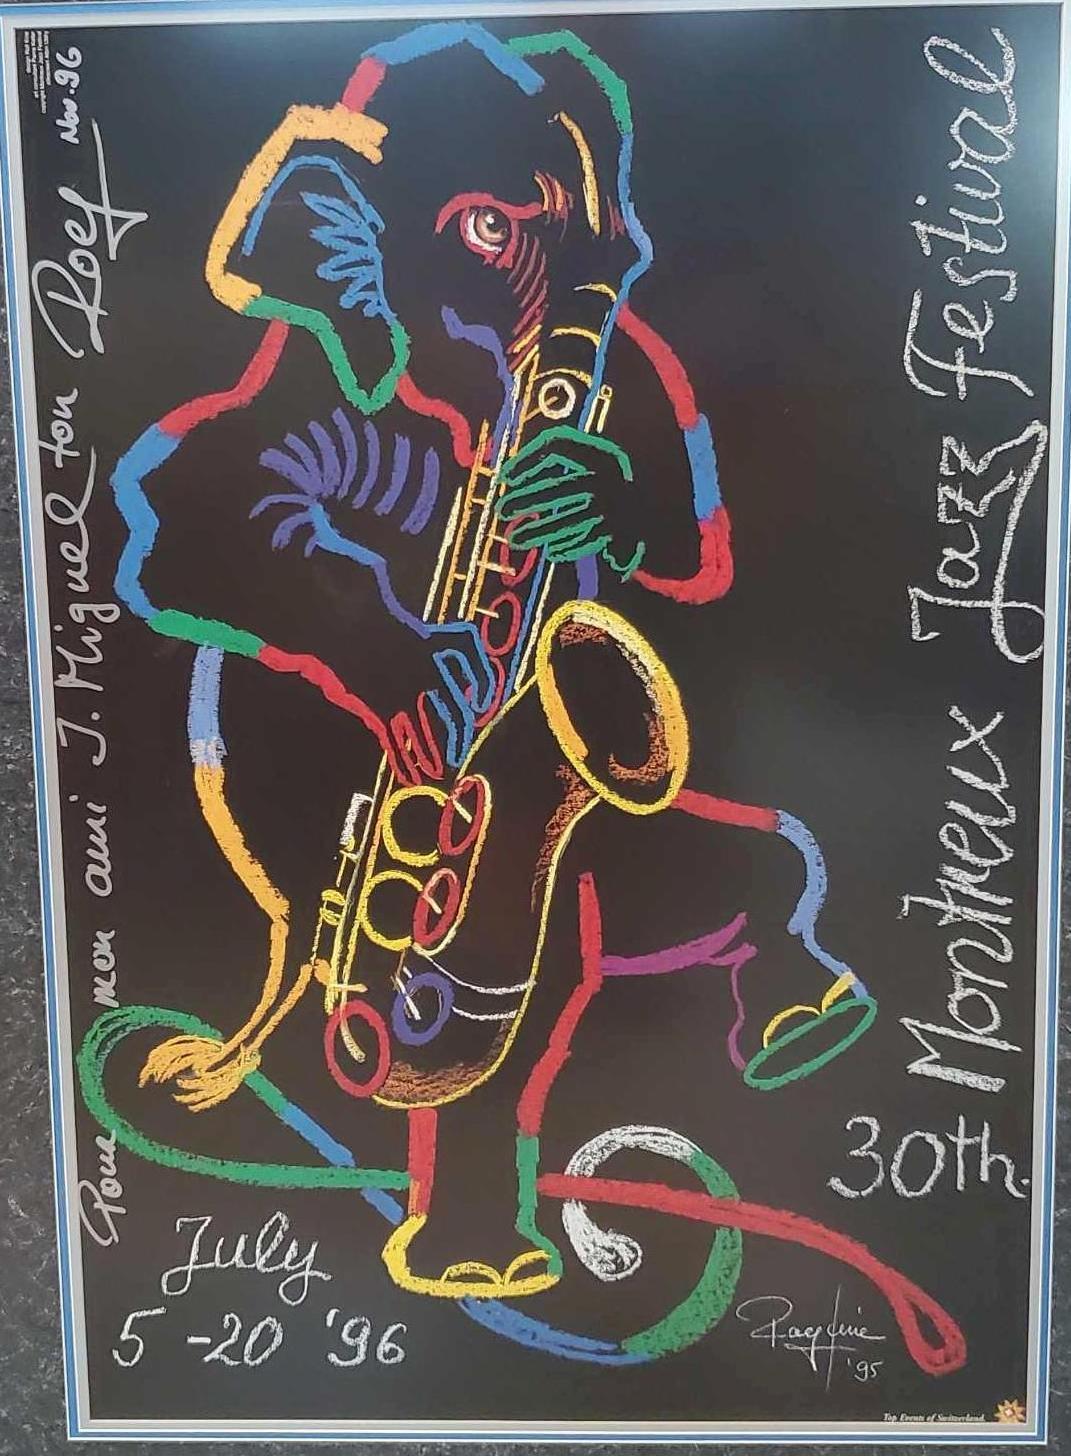 30th. Montreux Jazz Festival
July
5 -20 '96
Pour mon ami J. Miguel ton Roef Nov. 96
'95
Top Events of Switzerland